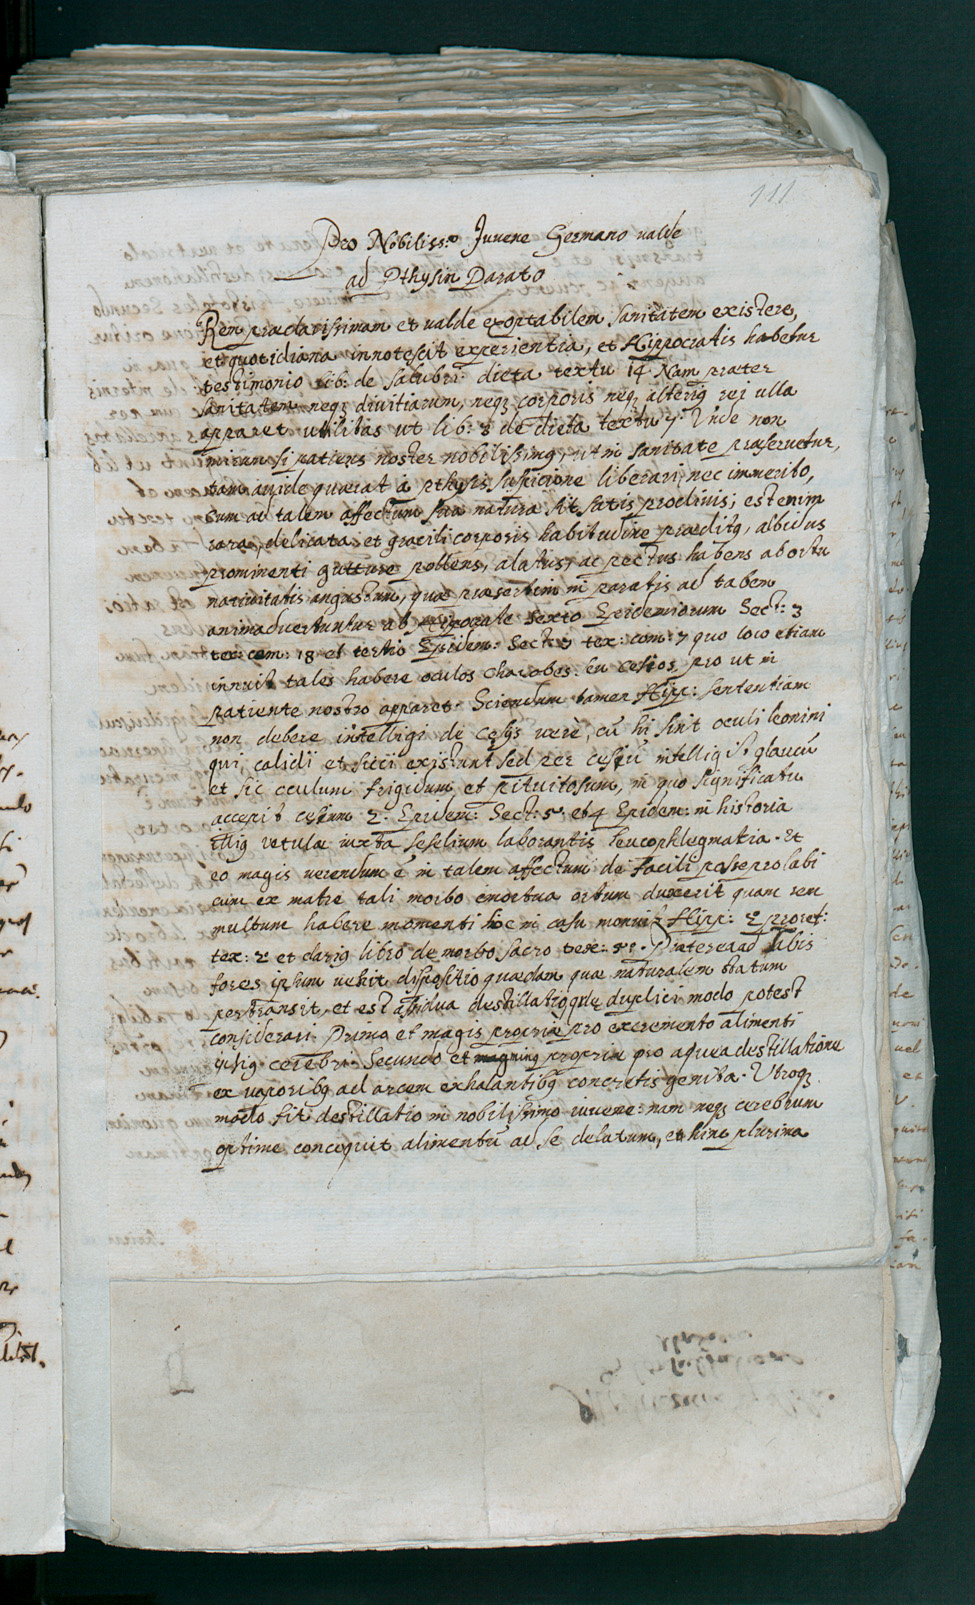 111
Pro Nobiliss:o Juvene Germano valde
ad Pthysin Parato
Rem præclarissimam et valde exoptabilem sanitatem existere,
et quotidiana innotescit experientia, et Hippocratis habetur
testimonio lib: de salubri dieta textu 14. Nam præter
sanitatem neq; divitiarum, neq; corporis neq; alterig rei ulla
apparet utilitas ut lib: 3 de dieta textu 7. Inde non
mirum si patiens noster nobilissimg, ut in sanitate præservetur,
tam avide quærat a pthysis suspicione liberari; nec immerito,
cum ad talem affectum sua natura sit satis proclivis; est enim
rara, delicata et gracili corporis habitudine præditg, albidus
prominenti gutture pollens, alatus, ac pectus habens ab ortu
nativitatis angustum, quæ præsertim in paratis ad tabem
animadvertuntur ab Hippocrate sexto Epidemiorum Sect: 3
tex: com: 18 et tertio Epidem: Sect: 3 tex: com: 7 quo loco etiam
innuit tales habere oculos charobes. seu cesios, pro ut in
patiente nostro apparet. Sciendum tamen Hipp: sententiam
non debere intelligi de cesijs vere, cū hi sint oculi leonini
qui, calidi et sicci existunt sed per cesiū intelligit glaucū
et sic oculum frigidum et pituitosum, in quo significatu
accepit cesium 2. Epidem: Sect: 5. et 4 Epidem: in historia
illig vetulæ iuxta seselium laborantis leucophlegmatia. Et
eo magis verendum ē in talem affectum de facili posse prolabi
cum ex matre tali morbo emortua ortum duxerit quam rem
multum habere momenti hoc in casu monuit Hipp: 2 proret:
tex: 2 et clarig libro de morbo sacro tex: Præterea ad tabis
fores ipsum vehit dispositio quædam quæ naturalem statum
pertransit, et est assidua destillatio quæ duplici modo potest
considerari. Primo et magis propriæ pro excremento alimenti
ipsig cerebri. Secundo et proprie pro aquea destillatione
ex vaporibg ad arcem exhalantibg concretis genita. Utroq;
modo fit destillatio in nobilissimo iuvene: nam neq; cerebrum
optime concoquit alimentū ad se delatum, et hinc plurima